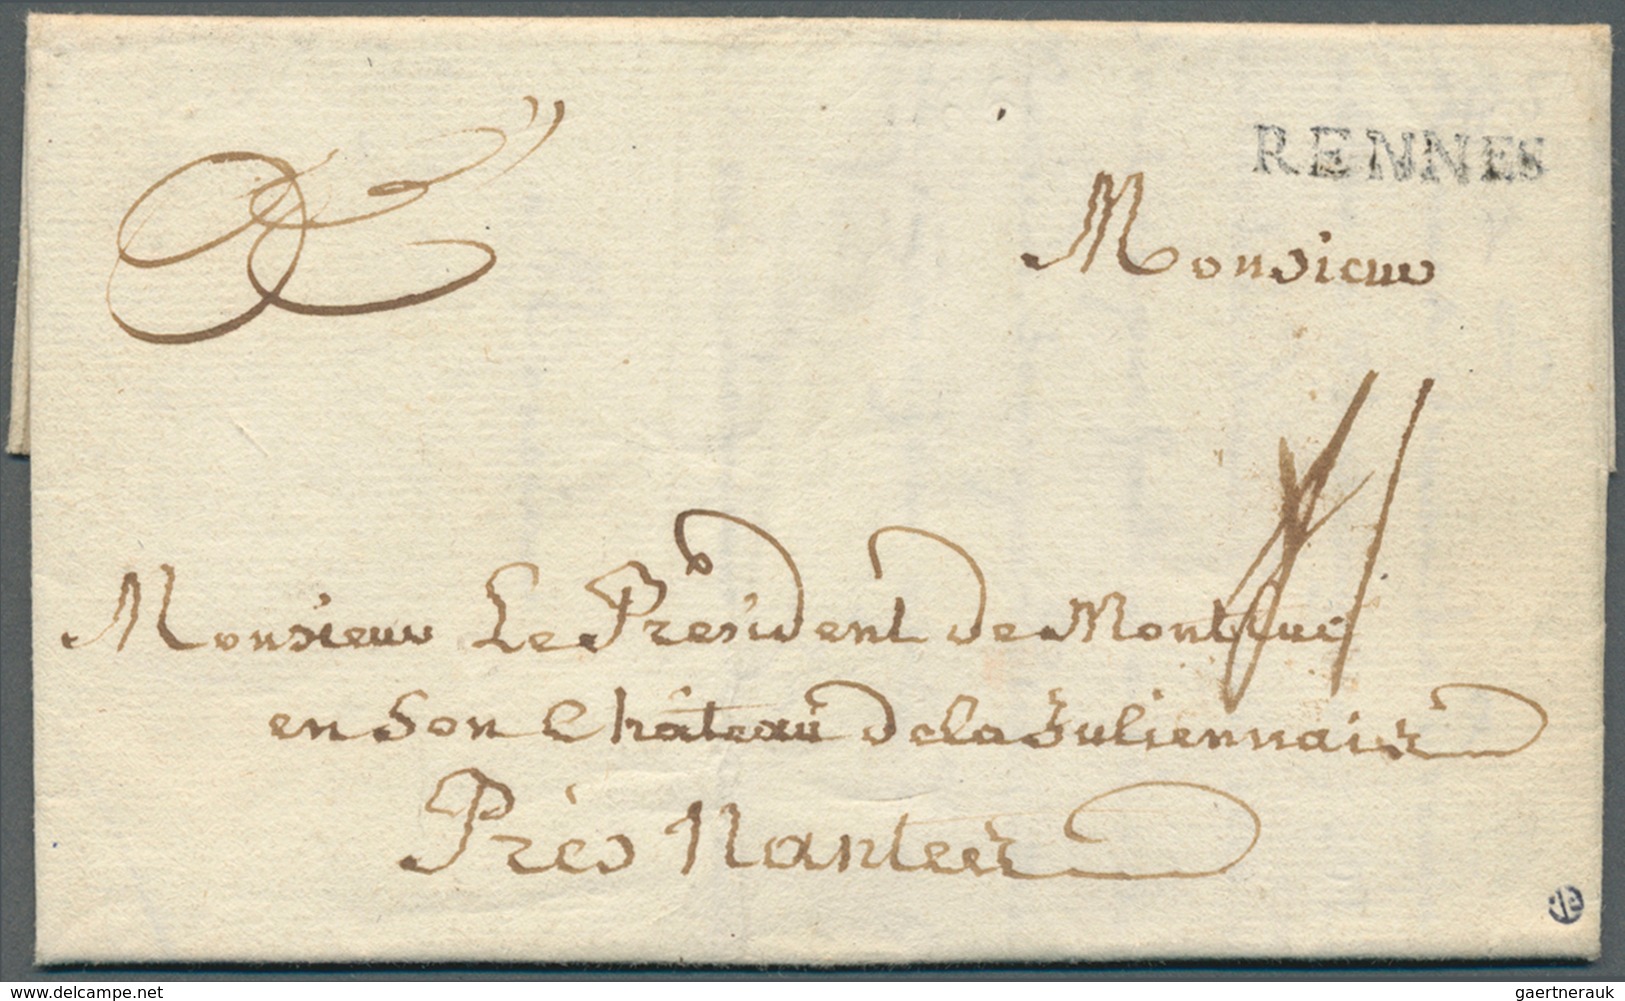 RENNES
Monsieur
Monsieur Le Président de Montluc
en Son Château de la Juliennais
Près Nantes
delcampe.net
gaertnerauk